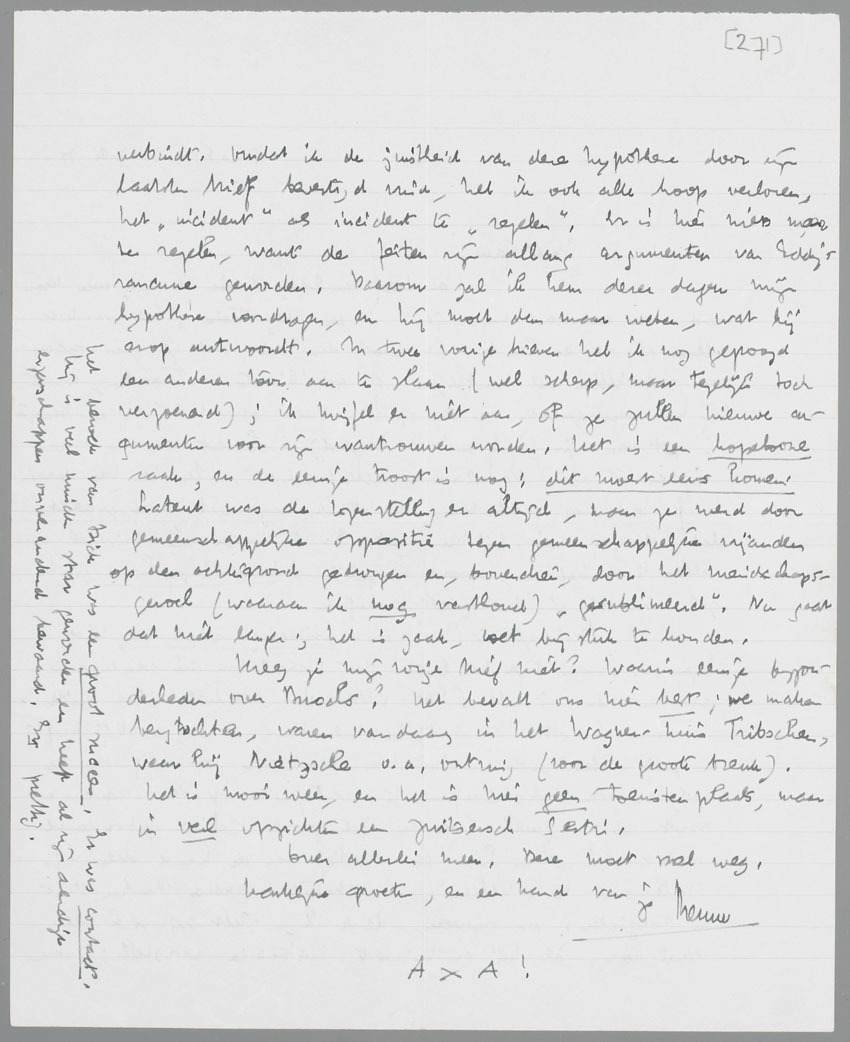 [271]
verbindt. Omdat ik de juistheid van deze hypothese door zijn
laatsten brief bevestigd vind, heb ik ook alle hoop verloren,
het „incident" als incident te „regelen". Er is hier niets meer
te regelen, want de feiten zijn allang argumenten van Eddy's
rancune geworden. Daarom zal ik hem dezer dagen mijn
hypothese voordragen, en hij moet dan maar weten, wat hij
erop antwoordt. In twee vorige brieven heb ik nog gepoogd
een anderen toon aan te slaan (wel scherp, maar tegelijk toch
verzoenend); ik twijfel er niet aan, of ze zullen nieuwe ar-
gumenten voor zijn wantrouwen worden. Het is een hopelooze
zaak, en de eenige troost is nog: dit moest eens komen!
Latent was de tegenstelling er altijd, maar ze werd door
gemeenschappelijke oppositie tegen gemeenschappelijke vijanden
op den achtergrond gedrongen en, bovendien, door het vriendschaps-
gevoel (waaraan ik nog vasthoud) „gesublimeerd". Nu gaat
dat niet langer; het is zaak, het bij stuk te houden.
Kreeg je mijn vorige brief niet? Waarin eenige bijzon-
derheden over Broch? Het bevalt ons hier best; we maken
bergtochten, waren vandaag in het Wagner-huis Tribschen,
waar hij Nietzsche o.a. ontving (voor de groote breuk).
Het is mooi weer, en het is hier geen toeristenplaats, maar
in veel opzichten een Zwitsersch Sestri.
Over allerlei meer. Deze moet snel weg.
Hartelijke groeten, en een hand van je Menno
A x A!
Het bezoek van Dick was een groot succes. Er was contact.
Hij is veel minder star geworden en heeft al zijn aardige
eigenschappen onveranderd bewaard. Zeer prettig.